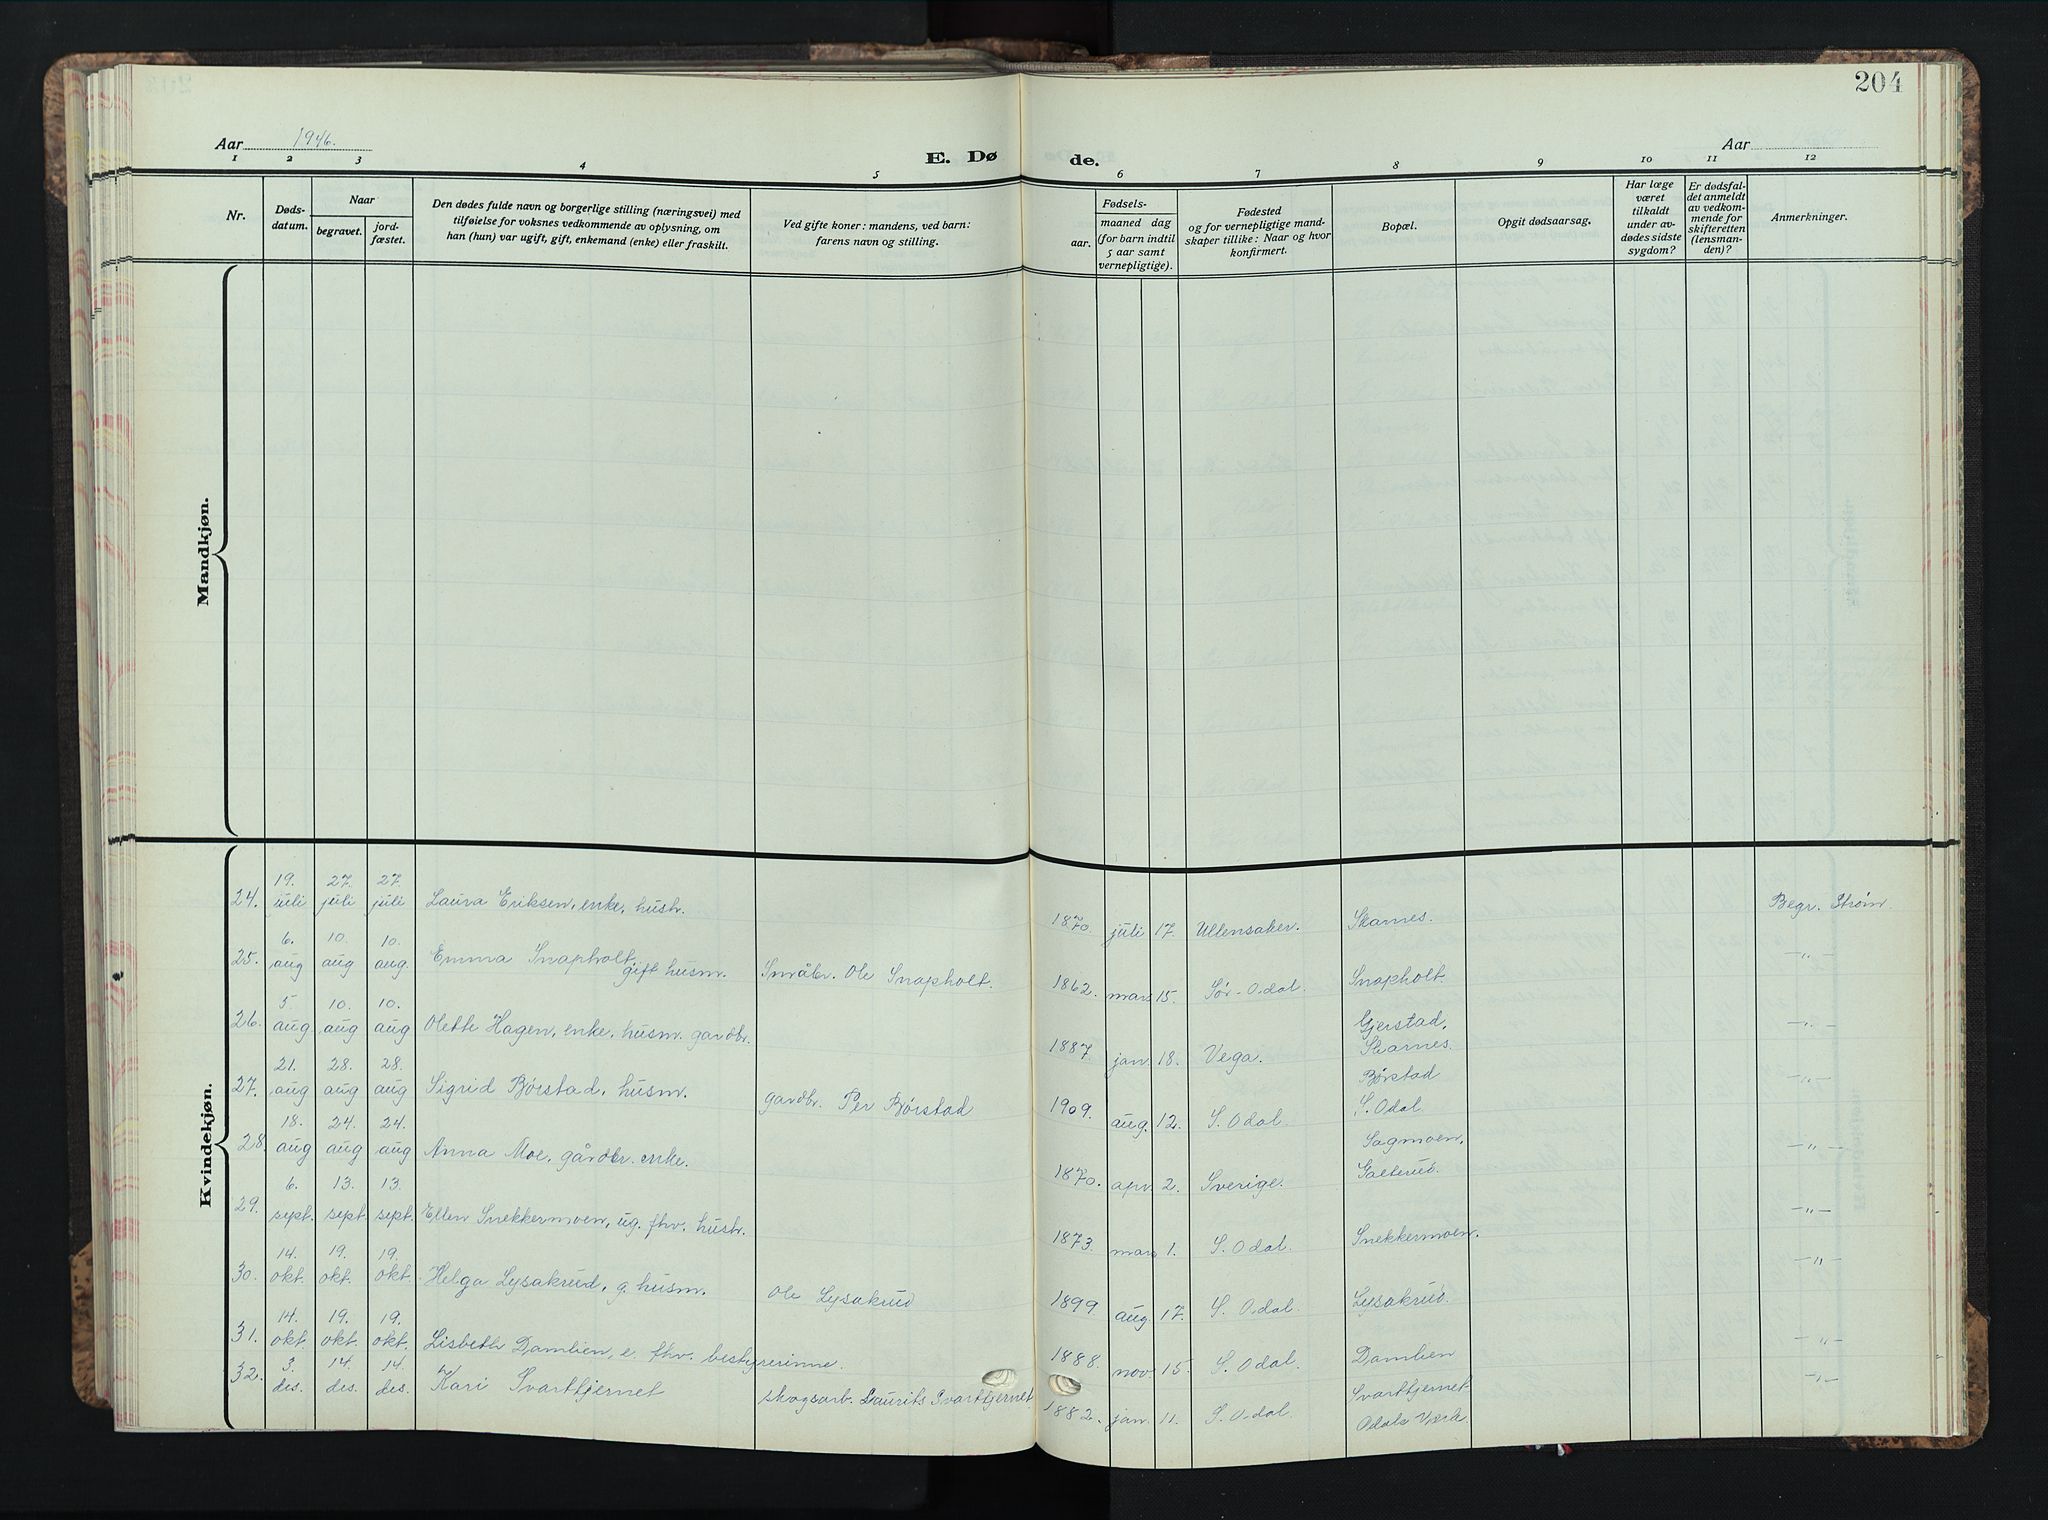 204
Aar 1946.
E. Døde.
Aar
1 2 3 4 5 6 7 8 9 10 11 12
Nr.
Døds-
datum.
Naar
begravet.
jord-
fæstet.
Den dødes fulde navn og borgerlige stilling (næringsvei) med
tilføielse for voksnes vedkommende av oplysning, om
han (hun) var ugift, gift, enkemand (enke) eller fraskilt.
Ved gifte koner: mandens, ved barn:
farens navn og stilling.
Fødsels-
aar.
maaned dag
(for barn indtil
5 aar samt
vernepligtige).
Fødested
og for vernepligtige mand-
skaper tillike: Naar og hvor
konfirmert.
Bopæl.
Opgit dødsaarsag.
Har læge
været
tilkaldt
under av-
dødes sidste
sygdom?
Er dødsfal-
det anmeldt
av vedkom-
mende for
skifteretten
(lensman-
den)?
Anmerkninger.
Mandkjøn.
Kvindekjøn.
19. 27. 27.
24. juli juli juli Laura Eriksen, enke, hustr. 1870. juli 17. Ullensaker. Skarnes. Begr. Strøm.
6. 10. 10.
25. aug aug aug. Emma Snapholt, gift husm. Småbr. Ole Snapholt. 1862. mars 15. Sør-Odal. Snapholt. -"-
5. 10. 10.
26. aug aug aug Olette Hagen, enke, husm. gardbr. 1887. jan. 18. Vega. Gjerstad, Skarnes. -"-
21. 28. 28.
27. aug aug aug Sigrid Børstad, husm. gardbr. Per Børstad 1909. aug. 12. S. Odal. Børstad S. Odal -"-
18. 24. 24.
28. aug aug aug Anna Moe, gårdbr. enke. 1870. apr. 2. Sverige. Sagmoen, Galterud. -"-
6. 13. 13.
29. sept. sept. sept. Ellen Snekkermoen, ug. fhv. hustr. 1873. mars 1. S. Odal. Snekkermoen. -"-
14. 19. 19.
30. okt. okt. okt. Helga Lysakrud, g. husm. Ole Lysakrud 1899 aug. 17. S. Odal. Lysakrud. -"-
14. 19. 19.
31. okt. okt. okt. Lisbeth Damlien, e. fhv. bestyrerinne. 1888. nov. 15. S. Odal. Damlien -"-
3. 14. 14.
32. des. des. des. Kari Svarttjernet skogsarb. Laurits Svarttjernet 1882. jan. 11. S. Odal. Svarttjernet Odals Verk. -"-